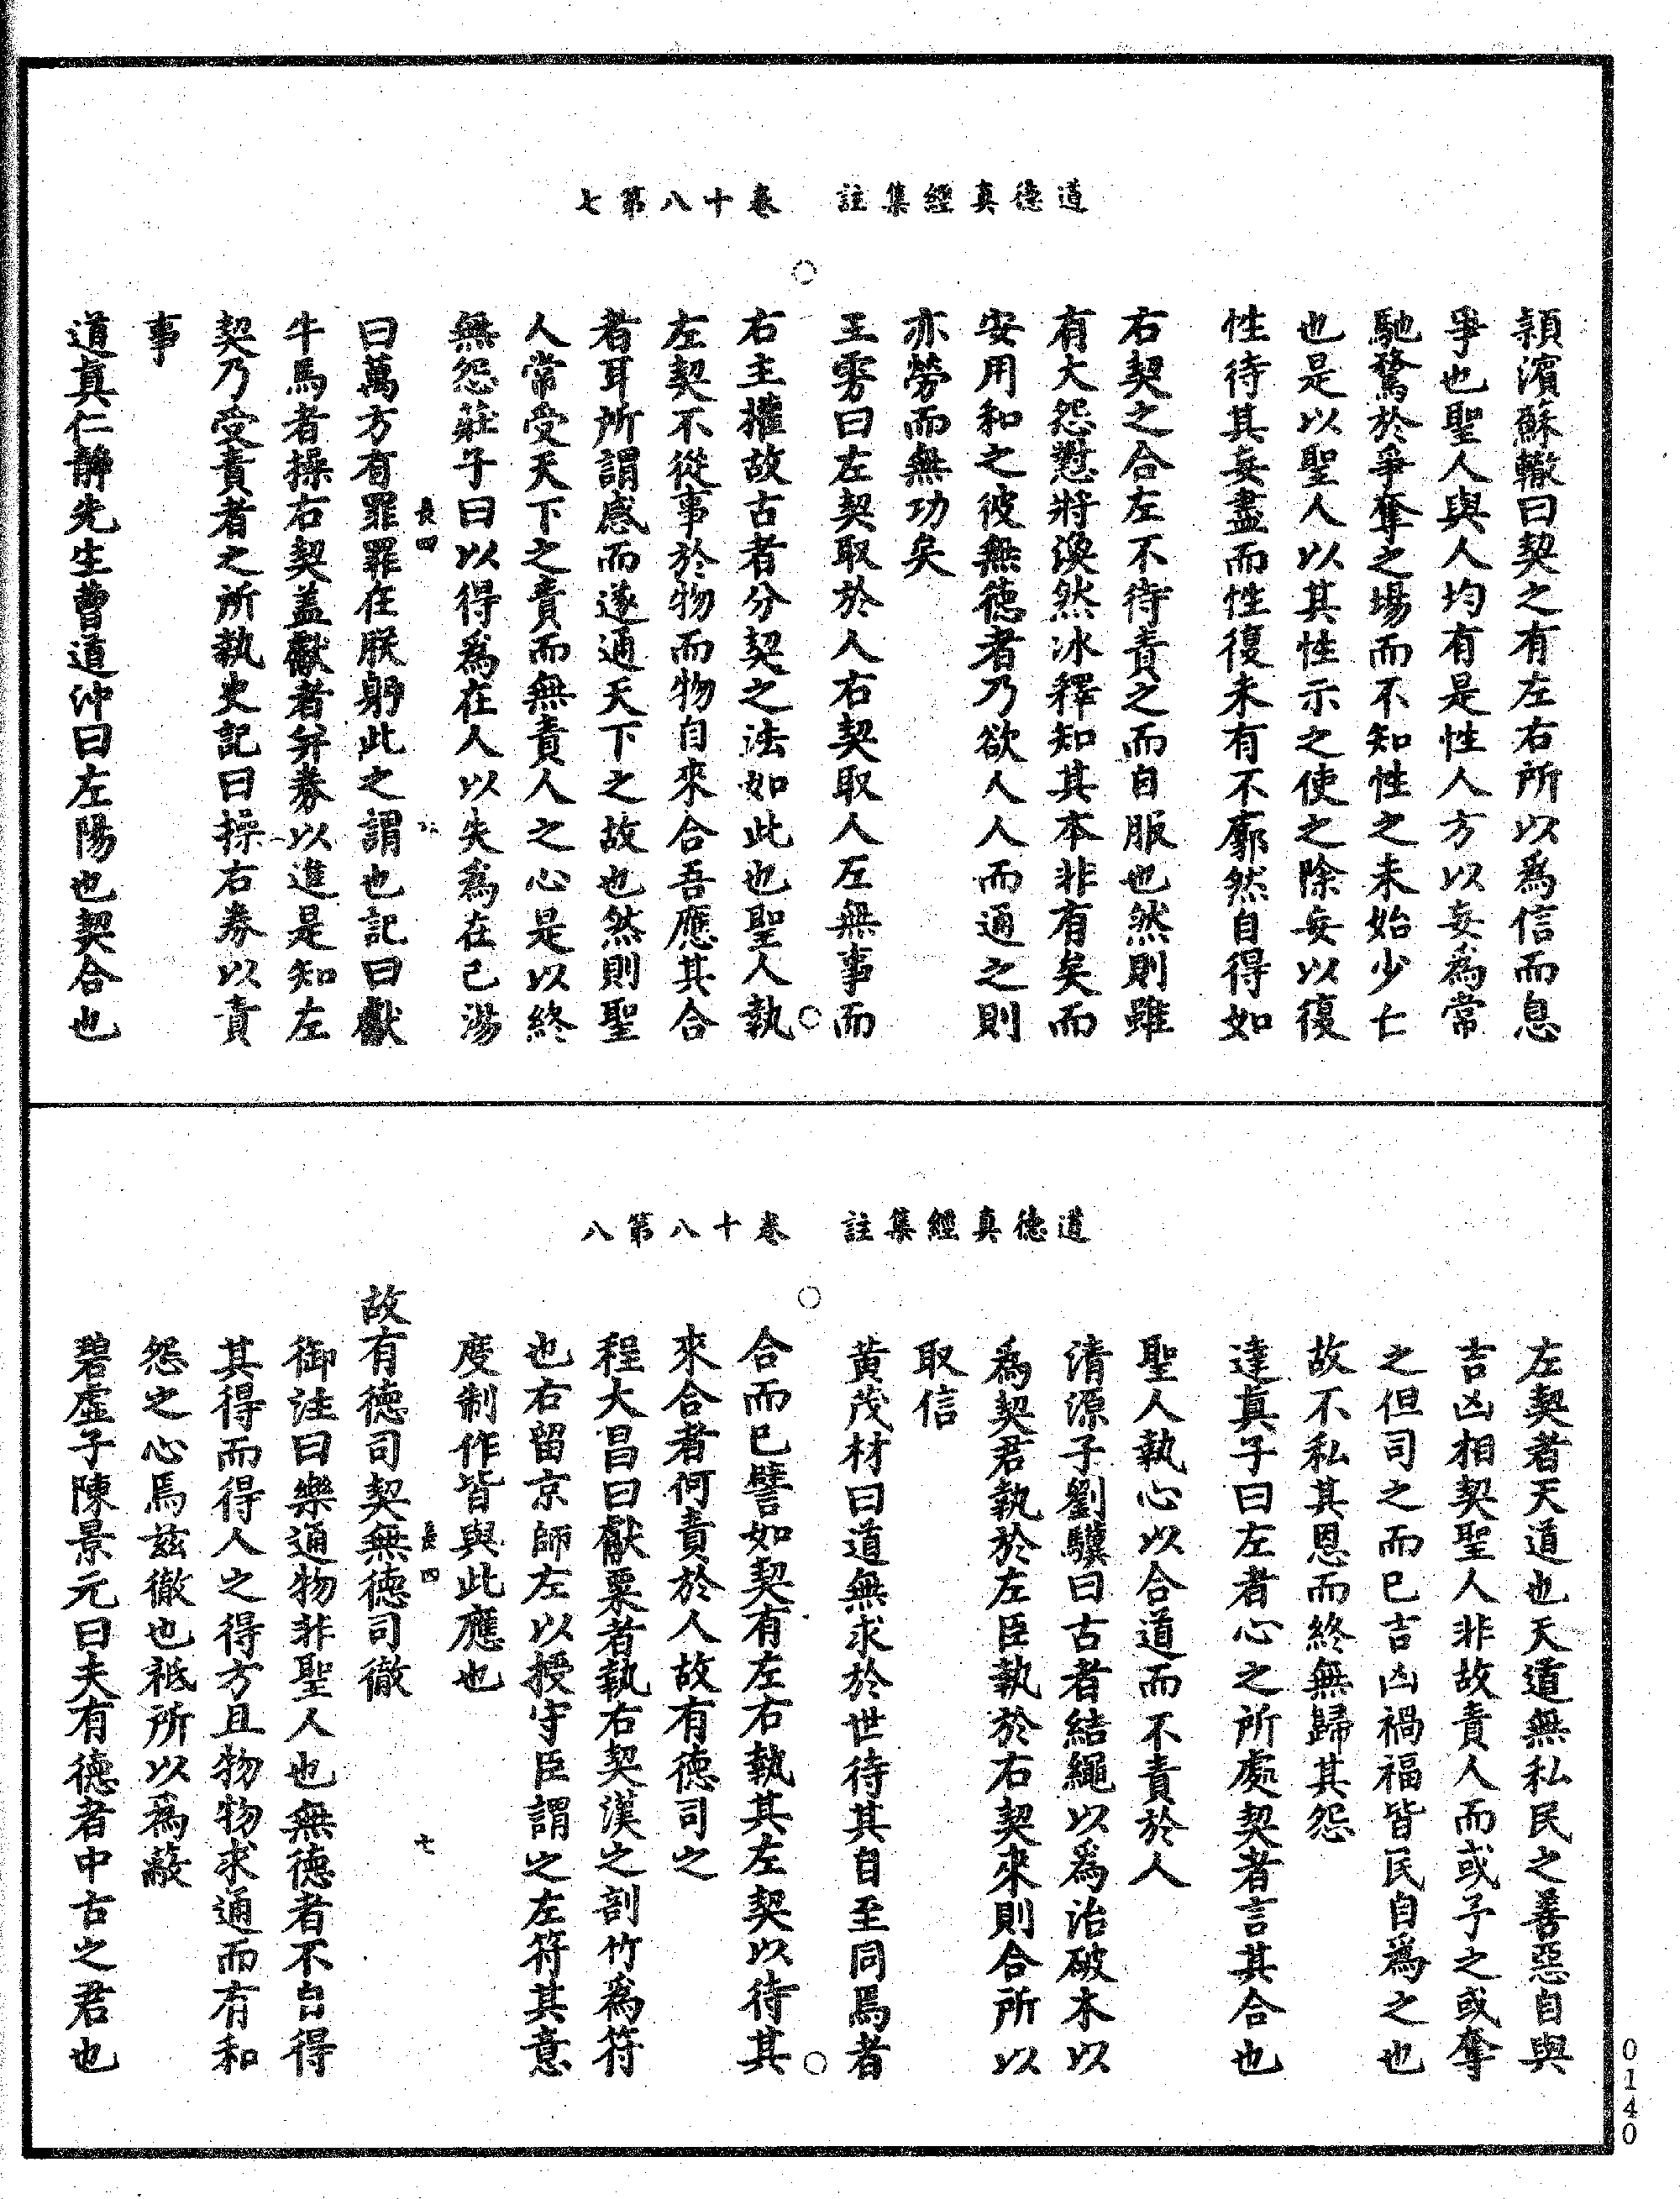 道德真經集註　卷十八第七
潁濱蘇轍曰契之有左右所以爲信而息
爭也聖人與人均有是性人方以妄爲常
馳騖於爭奪之場而不知性之未始少亡
也是以聖人以其性示之使之除妄以復
性待其妄盡而性復未有不廓然自得如
右契之合左不待責之而自服也然則雖
有大怨懟將渙然冰釋知其本非有矣而
安用和之彼無德者乃欲人人而通之則
亦勞而無功矣
王雱曰左契取於人右契取人左無事而
右主權故古者分契之法如此也聖人執
左契不從事於物而物自來合吾應其合
者耳所謂感而遂通天下之故也然則聖
人常受天下之責而無責人之心是以終
無怨莊子曰以得爲在人以失爲在己湯
長四
六
曰萬方有罪罪在朕躬此之謂也記曰獻
牛馬者操右契蓋獻者并券以進是知左
契乃受責者之所執史記曰操右券以責
事
道真仁靜先生曹道沖曰左陽也契合也
道德真經集註　卷十八第八
左契者天道也天道無私民之善惡自與
吉凶相契聖人非故責人而或予之或奪
之但司之而已吉凶禍福皆民自爲之也
故不私其恩而終無歸其怨
達真子曰左者心之所處契者言其合也
聖人執心以合道而不責於人
清源子劉驥曰古者結繩以爲治破木以
爲契君執於左臣執於右契來則合所以
取信
黃茂材曰道無求於世待其自至同焉者
合而已譬如契有左右執其左契以待其
來合者何責於人故有德司之
程大昌曰獻粟者執右契漢之剖竹爲符
也右留京師左以授守臣謂之左符其意
度制作皆與此應也
長四
七
故有德司契無德司徹
御注曰樂通物非聖人也無德者不自得
其得而得人之得方且物物求通而有和
怨之心焉茲徹也祇所以爲蔽
碧虛子陳景元曰夫有德者中古之君也
0140